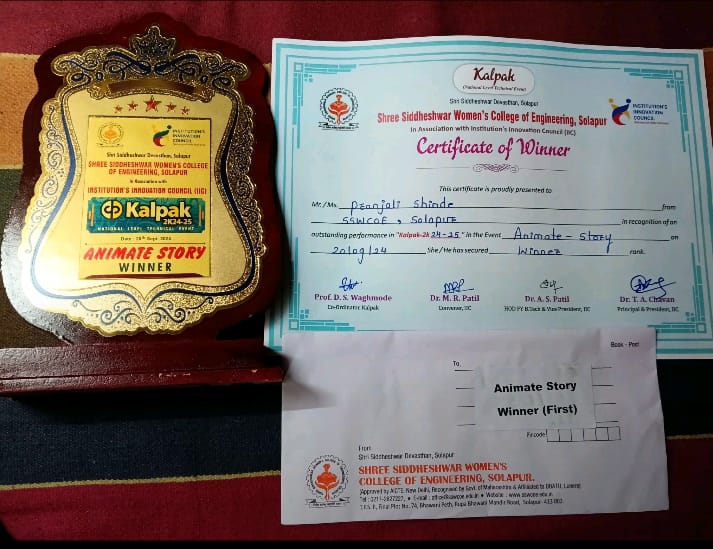 INSTITUTION'S
INNOVATION
COUNCIL
Shri Siddheshwar Devasthan, Solapur
SHREE SIDDHESHWAR WOMEN'S COLLEGE
OF ENGINEERING, SOLAPUR
In Association with
INSTITUTION'S INNOVATION COUNCIL (IIC)
Kalpak
2K24-25
NATIONAL LEVEL TECHNICAL EVENT
Date : 20th Sept. 2024
ANIMATE STORY
WINNER
Kalpak
(National Level Technical Event)
Shri Siddheshwar Devsthan, Solapur
Shree Siddheshwar Women's College of Engineering, Solapur
In Association with Institution's Innovation Council (IIC)
INSTITUTION'S
INNOVATION
COUNCIL
Certificate of Winner
This certificate is proudly presented to
Mr./Ms. Pranjali Shinde from
SSWCOE, Solapur in recognition of an
outstanding performance in "Kalpak-2k24-25" in the Event Animate - Story on
20/09/24 She/He has secured Winner rank.
Prof. D. S. Waghmode
Co-Ordinator Kalpak
Dr. M. R. Patil
Convener, IIC
Dr. A. S. Patil
HOD FY B.Tech & Vice President, IIC
Dr. T. A. Chavan
Principal & President, IIC
Book - Post
To,
Animate Story
Winner (First)
Pincode
From
Shri Siddheshwar Devasthan, Solapur
SHREE SIDDHESHWAR WOMEN'S
COLLEGE OF ENGINEERING, SOLAPUR.
(Approved by AICTE, New Delhi, Recognised by Govt. of Maharashtra & Affiliated to DBATU, Lonere)
Website : www.sswcoe.edu.in
Final Plot No. 74, Bhawani Peth, Rupa Bhawani Mandir Road, Solapur-413 002.